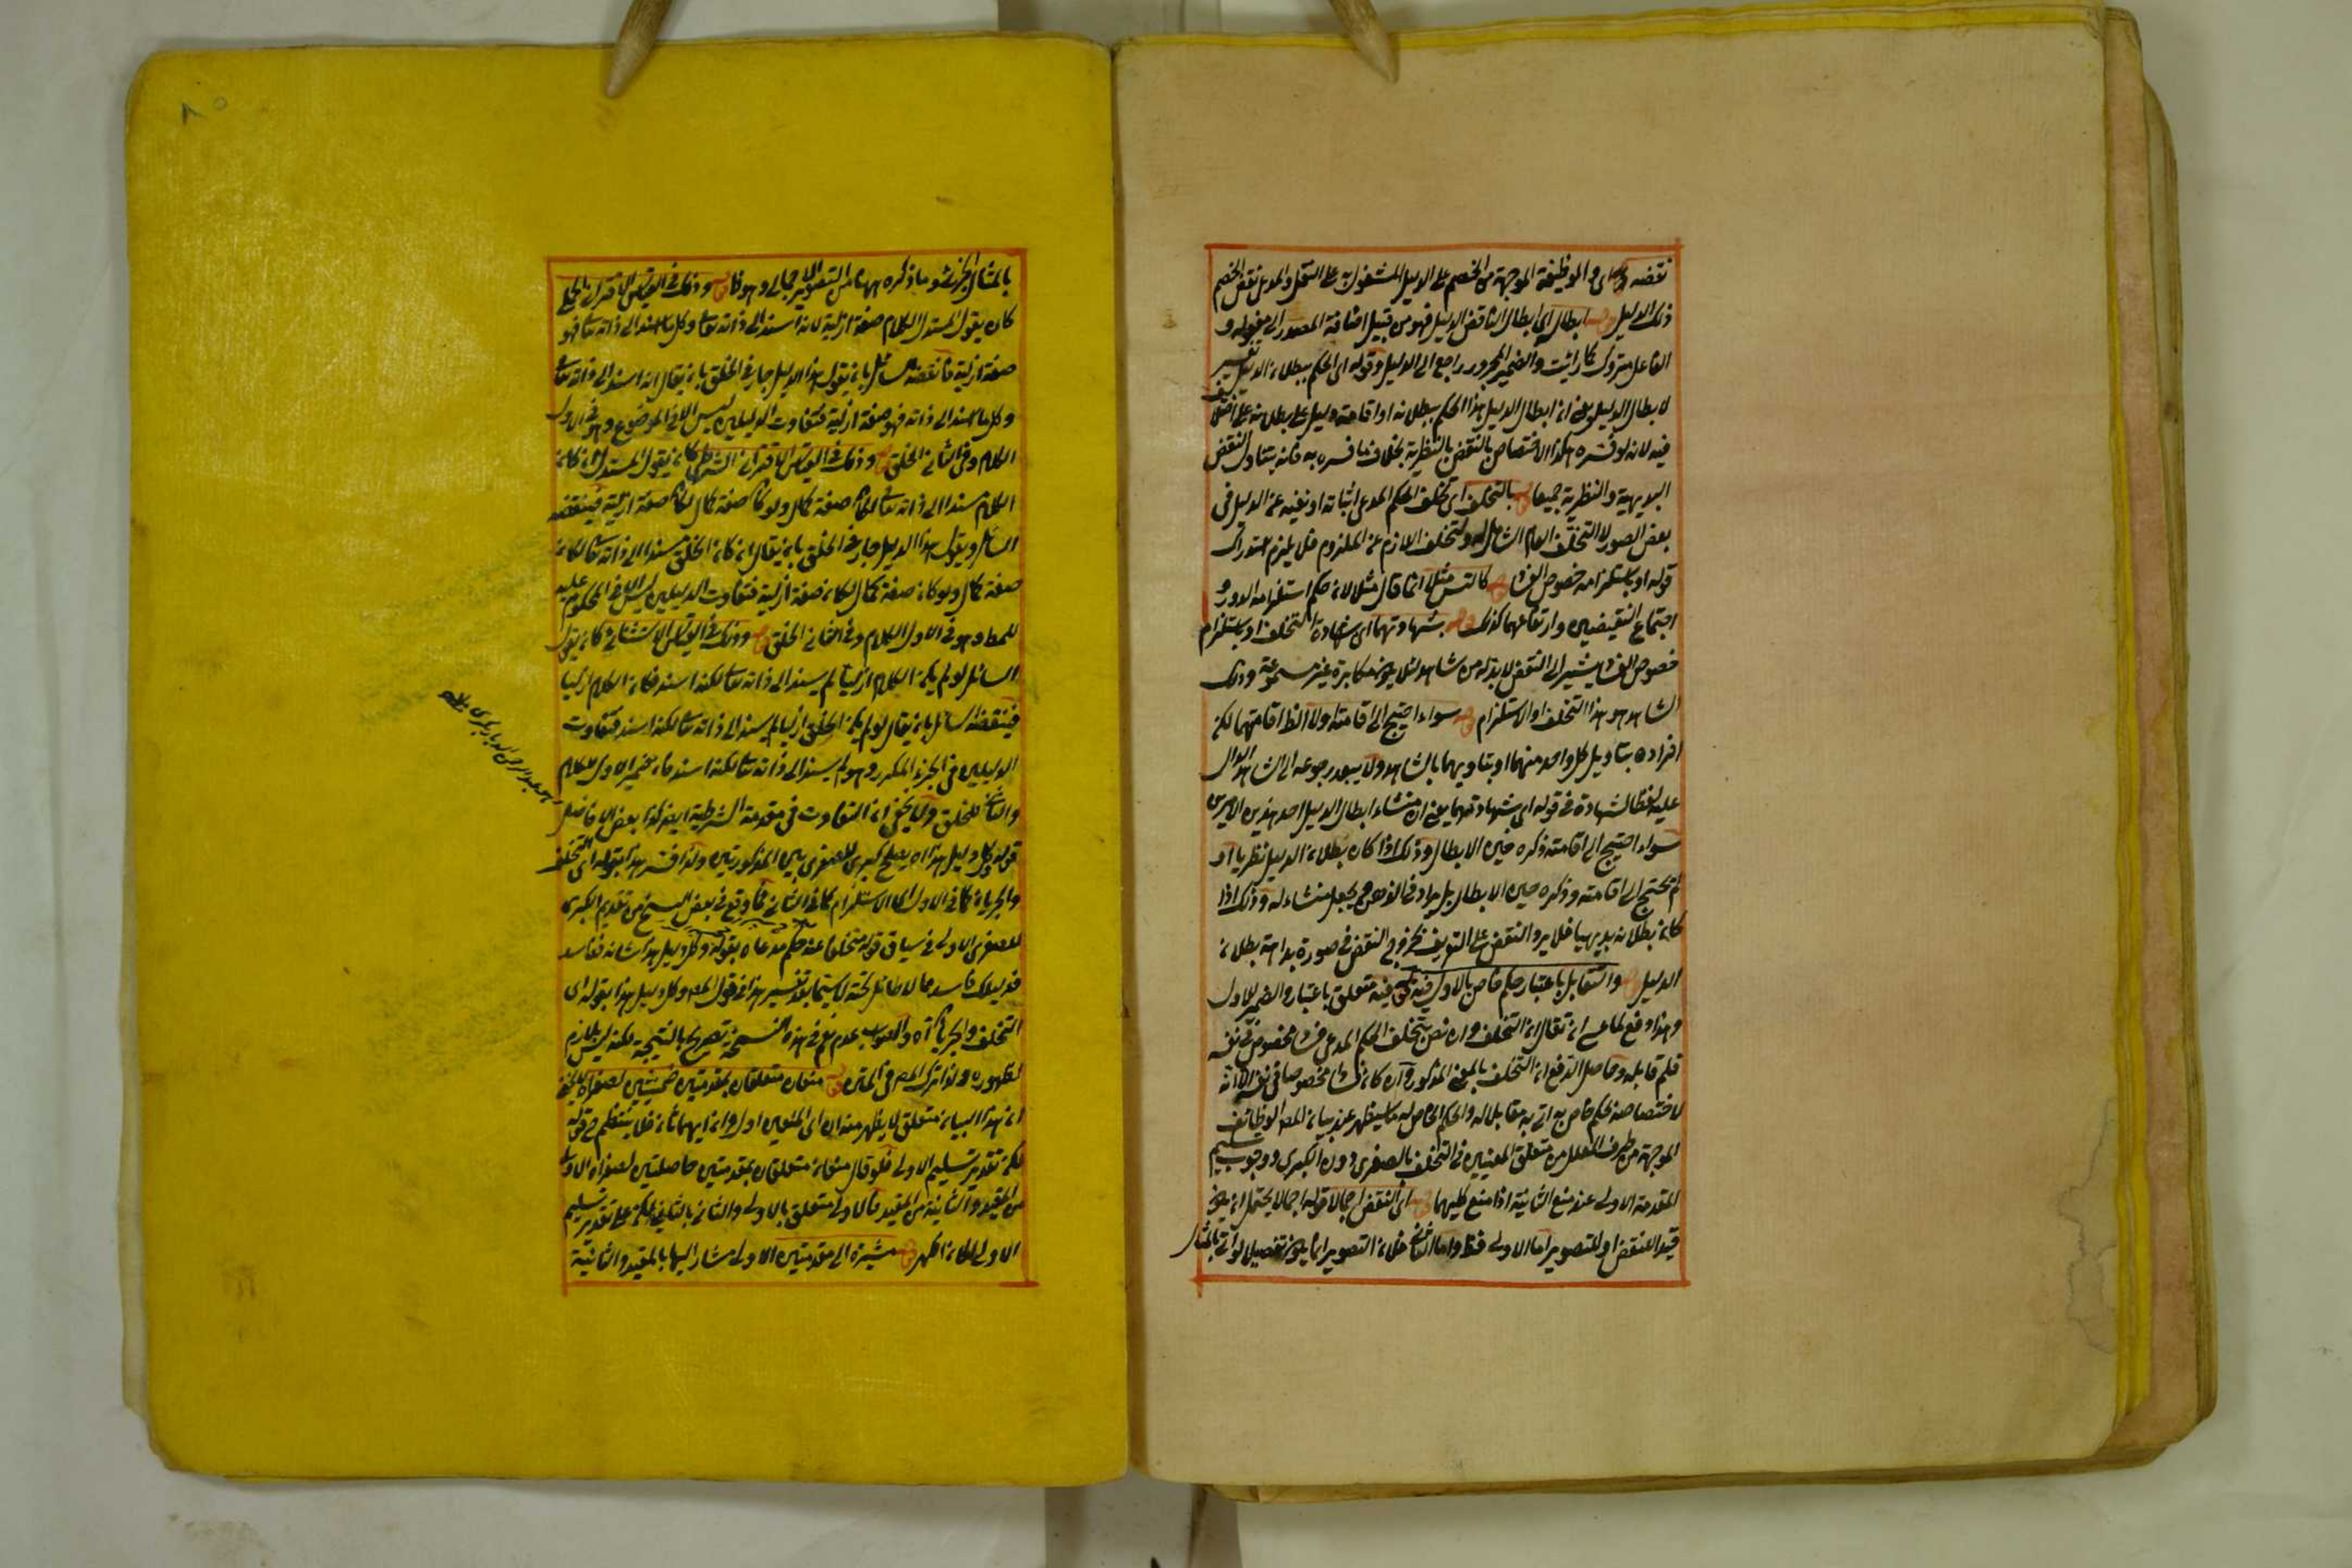 نقضه قوله اى والوظيفة الموجهة من الخصم على الدليل المشغول به على النقل والمدعى نقض الخصم
ذلك الدليل قوله ابطال اى ابطال الناقض الدليل فهو من قبيل اضافة المصدر الى مفعوله و
الفاعل متروك كما رأيت والضمير المجرور راجع الى الدليل وقوله اى الحكم ببطلان الدليل تفسير
لابطال الدليل يعنى ان ابطال الدليل هذا الحكم ببطلانه او اقامة دليل على بطلانه على
فيه لانه لو فسره هكذا لاختصاص بالنقض بالنظرية بخلاف ما فسره به فانه يتناول النقض
البديهية والنظرية جميعا قوله بالتخلف اى تخلف الحكم المدعى اثباته او نفيه عن الدليل فى
بعض الصور لا التخلف العام الشامل له ولتخلف اللازم عن الملزوم فلا يلزم استدراك
قوله او باستلزامه خصوص الفساد قوله كالتس مثلا انما قال مثلا لان حكم استلزامه الدور و
اجتماع النقيضين وارتفاعهما كذلك قوله بشهادتهما اى شهادة التخلف او باستلزام
خصوص الفساد يشير الى النقض لا بد له من شاهد لئلا يكون مكابرة غير مسموعة وذلك
الشاهد هو هذا التخلف او الاستلزام قوله سواء احتيج الى اقامته اولا الظ اقامتهما لكن
افراده بتاويل كل واحد منهما او بتاويهما بالشاهد ولا يبعد رجوعه الى الشاهد الدال
عليه لفظ الشهادة فى قوله اى شهادتهما يعنى ان منشاء ابطال الدليل احد هذين الامرين
سواء احتيج الى اقامته وذكره حين الابطال وذلك اذا كان بطلان الدليل نظريا او
لم يحتج الى اقامته وذكره حين الابطال بل يراد فى الذهن يجعل منشاء له وذلك اذا
كان بطلانه بديهيا فلا يرد النقض على التعريف بخروج النقض فى صورة بداهة بطلان
الدليل قوله والتقابل باعتبار حكم خاص بالاول فيه قوله فيه متعلق باعتبار والضمير للاول
وهذا دفع لما عسى ان يقال ان التخلف وان نص بتخلف الحكم المدعى فساد مخصوص فى نفسه
فلم قابله وحاصل الدفع ان التخلف بالمعنى المذكور وان كان فسادا مخصوصا فى نفسه الا انه
لاختصاصه بحكم خاص به اتى به مقابلا له والحكم الخاص له ما سيظهر عند بيان المص الوظائف
الموجهة من طرف المعلل من متعلق المعنيين فى التخلف بالصغرى دون الكبرى ووجوب تسليم
المقدمة الاولى عند منع الثانية اذا منع كليهما قوله اى النقض اجمالا قوله اجمالا يحتمل ان يكون
قيدا للنقض او للتصوير اما الاولى فظ واما الثانى فلان التصوير انما يكون تفصيلا لو اتى بالمثال
بالمثال الجزئى وما ذكره ههنا من التصوير الاجمالى وهو كاف قوله وذلك فى القياس الاقترانى الحملى
كان يقول المستدل الكلام صفة ازلية لانه اسند الى ذاته تعالى وكل ما اسند الى ذاته تعالى فهو
صفة ازلية فانقضه السائل بان يقول هذا الدليل جار فى الخلق بان يقال انه اسند الى ذاته تعالى
وكل ما اسند الى ذاته فهو صفة ازلية فتفاوت الدليلين ليس الا فى الموضوع وهو فى الاول
الكلام وفى الثانى الخلق قوله وذلك فى القياس الاقترانى الشرطى كان يقول المستدل ان كان
الكلام مسندا الى ذاته تعالى لكان صفة كمال ولو كان صفة كمال لكان صفة ازلية فينقضه
السائل ويقول هذا الدليل جار فى الخلق بان يقال ان كان الخلق مسندا الى ذاته تعالى لكان
صفة كمال ولو كان صفة كمال لكان صفة ازلية فتفاوت الدليلين ليس الا فى المحكوم عليه
للمط وهو فى الاول الكلام وفى الثانى الخلق قوله وذلك فى القياس الاستثنائى كان يقول
السائل لو لم يكن الكلام ازليا لم يسند الى ذاته تعالى لكنه اسند فكان الكلام ازليا
فينقضه السائل بان يقال لو لم يكن الخلق ازليا لم يسند الى ذاته تعالى لكنه اسند فتفاوت
الدليلين فى الجزء المكرر وهو لم يسند الى ذاته تعالى لكنه اسند فان ضمير الاول للكلام
والثانى للخلق ولا يخفى ان التفاوت فى مقدمة الشرطية ايضا كذا بعض الافاضل
قوله وكل دليل هذا شانه يصلح كبرى للصغرى بين المذكورتين ولذا فسر هذا بقوله اى التخلف
والجريان كما فى الاول اى الاستلزام كما فى الثانى فما وقع فى بعض النسخ من تقديم الكبرى
للصغرى الاولى فى سياق قوله متخلفا عنه حكم مدعاه بقوله وكل دليل هذا شانه ففاسد
فدليلك فاسد مما لا طائل تحته لا سيما بعد تفسير هذا فى قول المص وكل دليل هذا بقوله اى
التخلف والجريان آه والصواب عدمه نعم فى هذه النسخة تصريح بالنتيجة لكنه ليس بلازم
لظهوره ولذا ترك المص فى المتن قوله منعان متعلقان بمقدمتين ضمنيتين لصغراه لا يخفى
ان هذا البيان متعلق لا يظهر منه ان اى المنعين اول وان ايهما ثان فلا ينتظم فى قوله
لكن تقدير تسليم الاولى فلو قال منعان متعلقان بمقدمتين حاصلتين لصغراه الاولى
من المقيد والثانية من القيد فالاولى متعلق بالاولى والثانى بالثانى لكن على تقدير تسليم
الاولى لكان اظهر قوله مشيرة الى مقدمتين الاولى مشار اليها بالمقيد والثانية